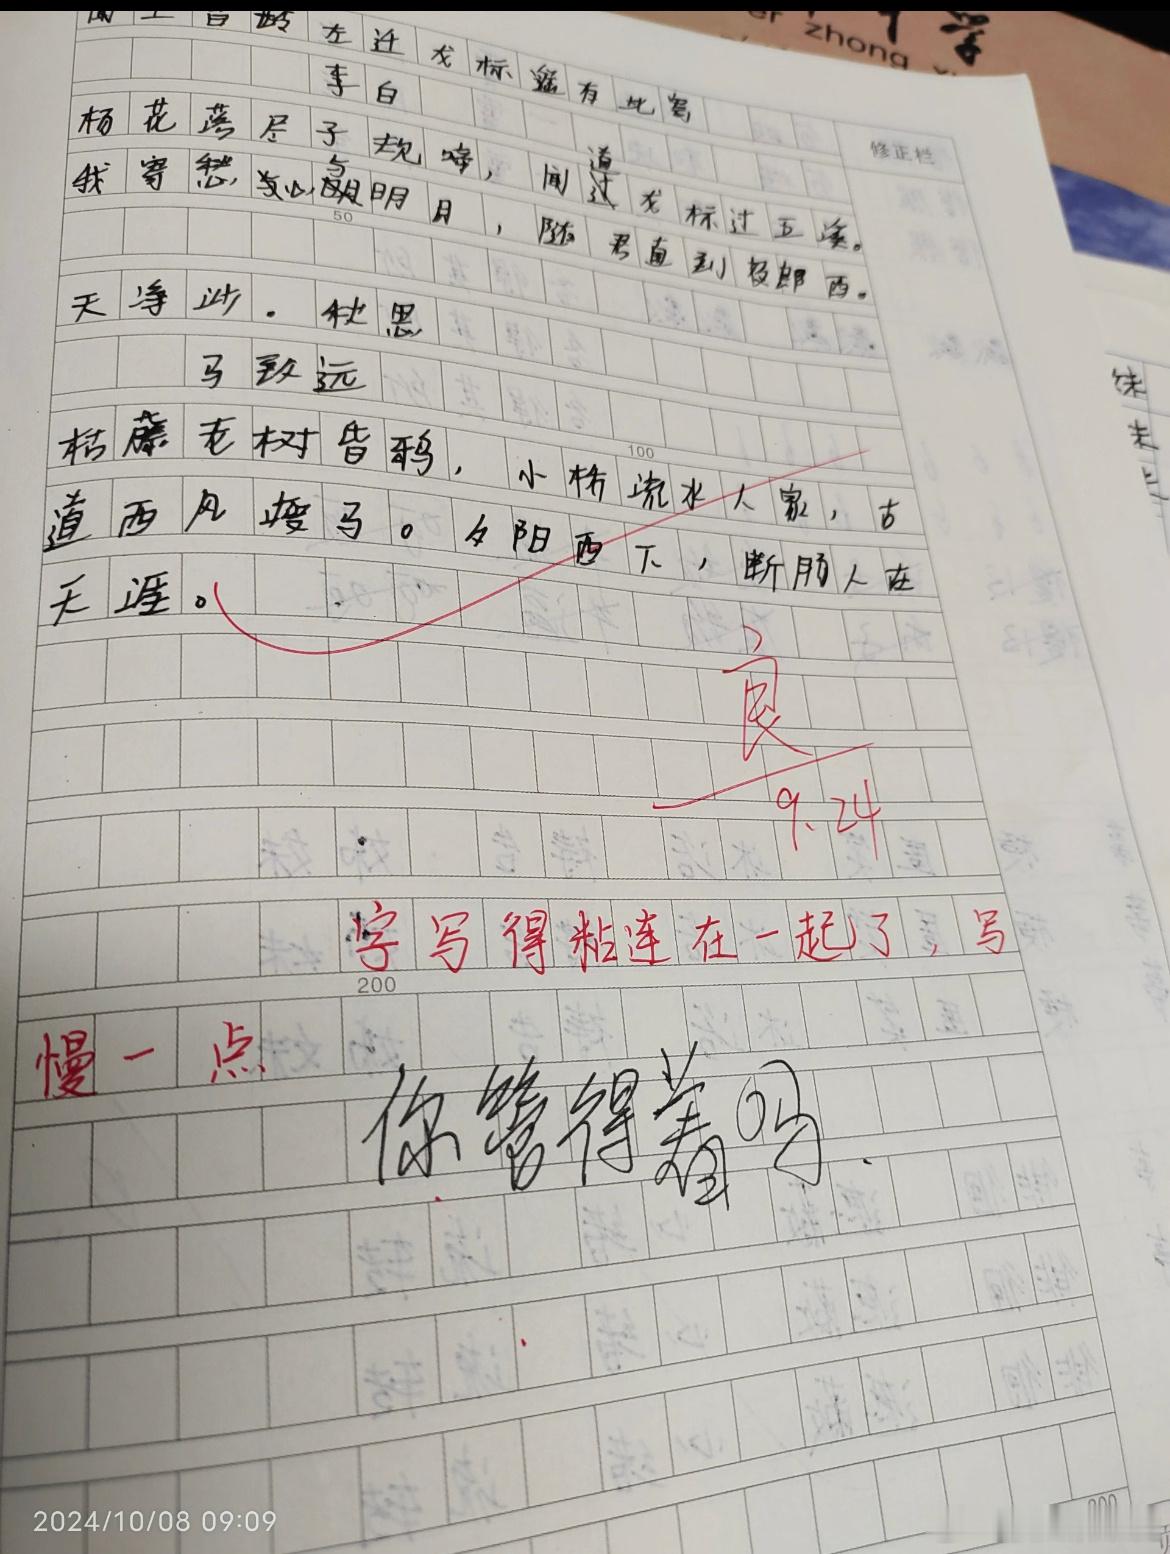 er zhong
学
闻王昌龄左迁龙标遥有此寄
修正栏
李白
杨花落尽子规啼，闻道龙标过五溪。
我寄愁心与明月，随君直到夜郎西。
50
天净沙·秋思
马致远
枯藤老树昏鸦，小桥流水人家，古
100
道西风瘦马。夕阳西下，断肠人在
天涯。
良
9.24
字写得粘连在一起了，写
200
慢一点
你管得着吗
2024/10/08 09:09